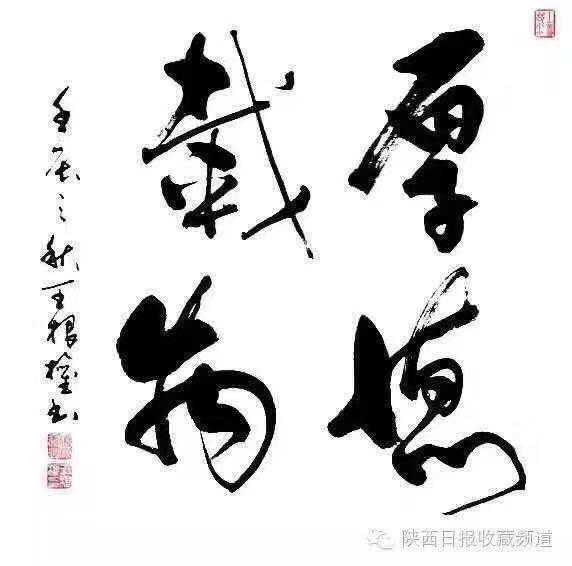 厚德
载物
壬辰之秋王根权书
陕西日报收藏频道